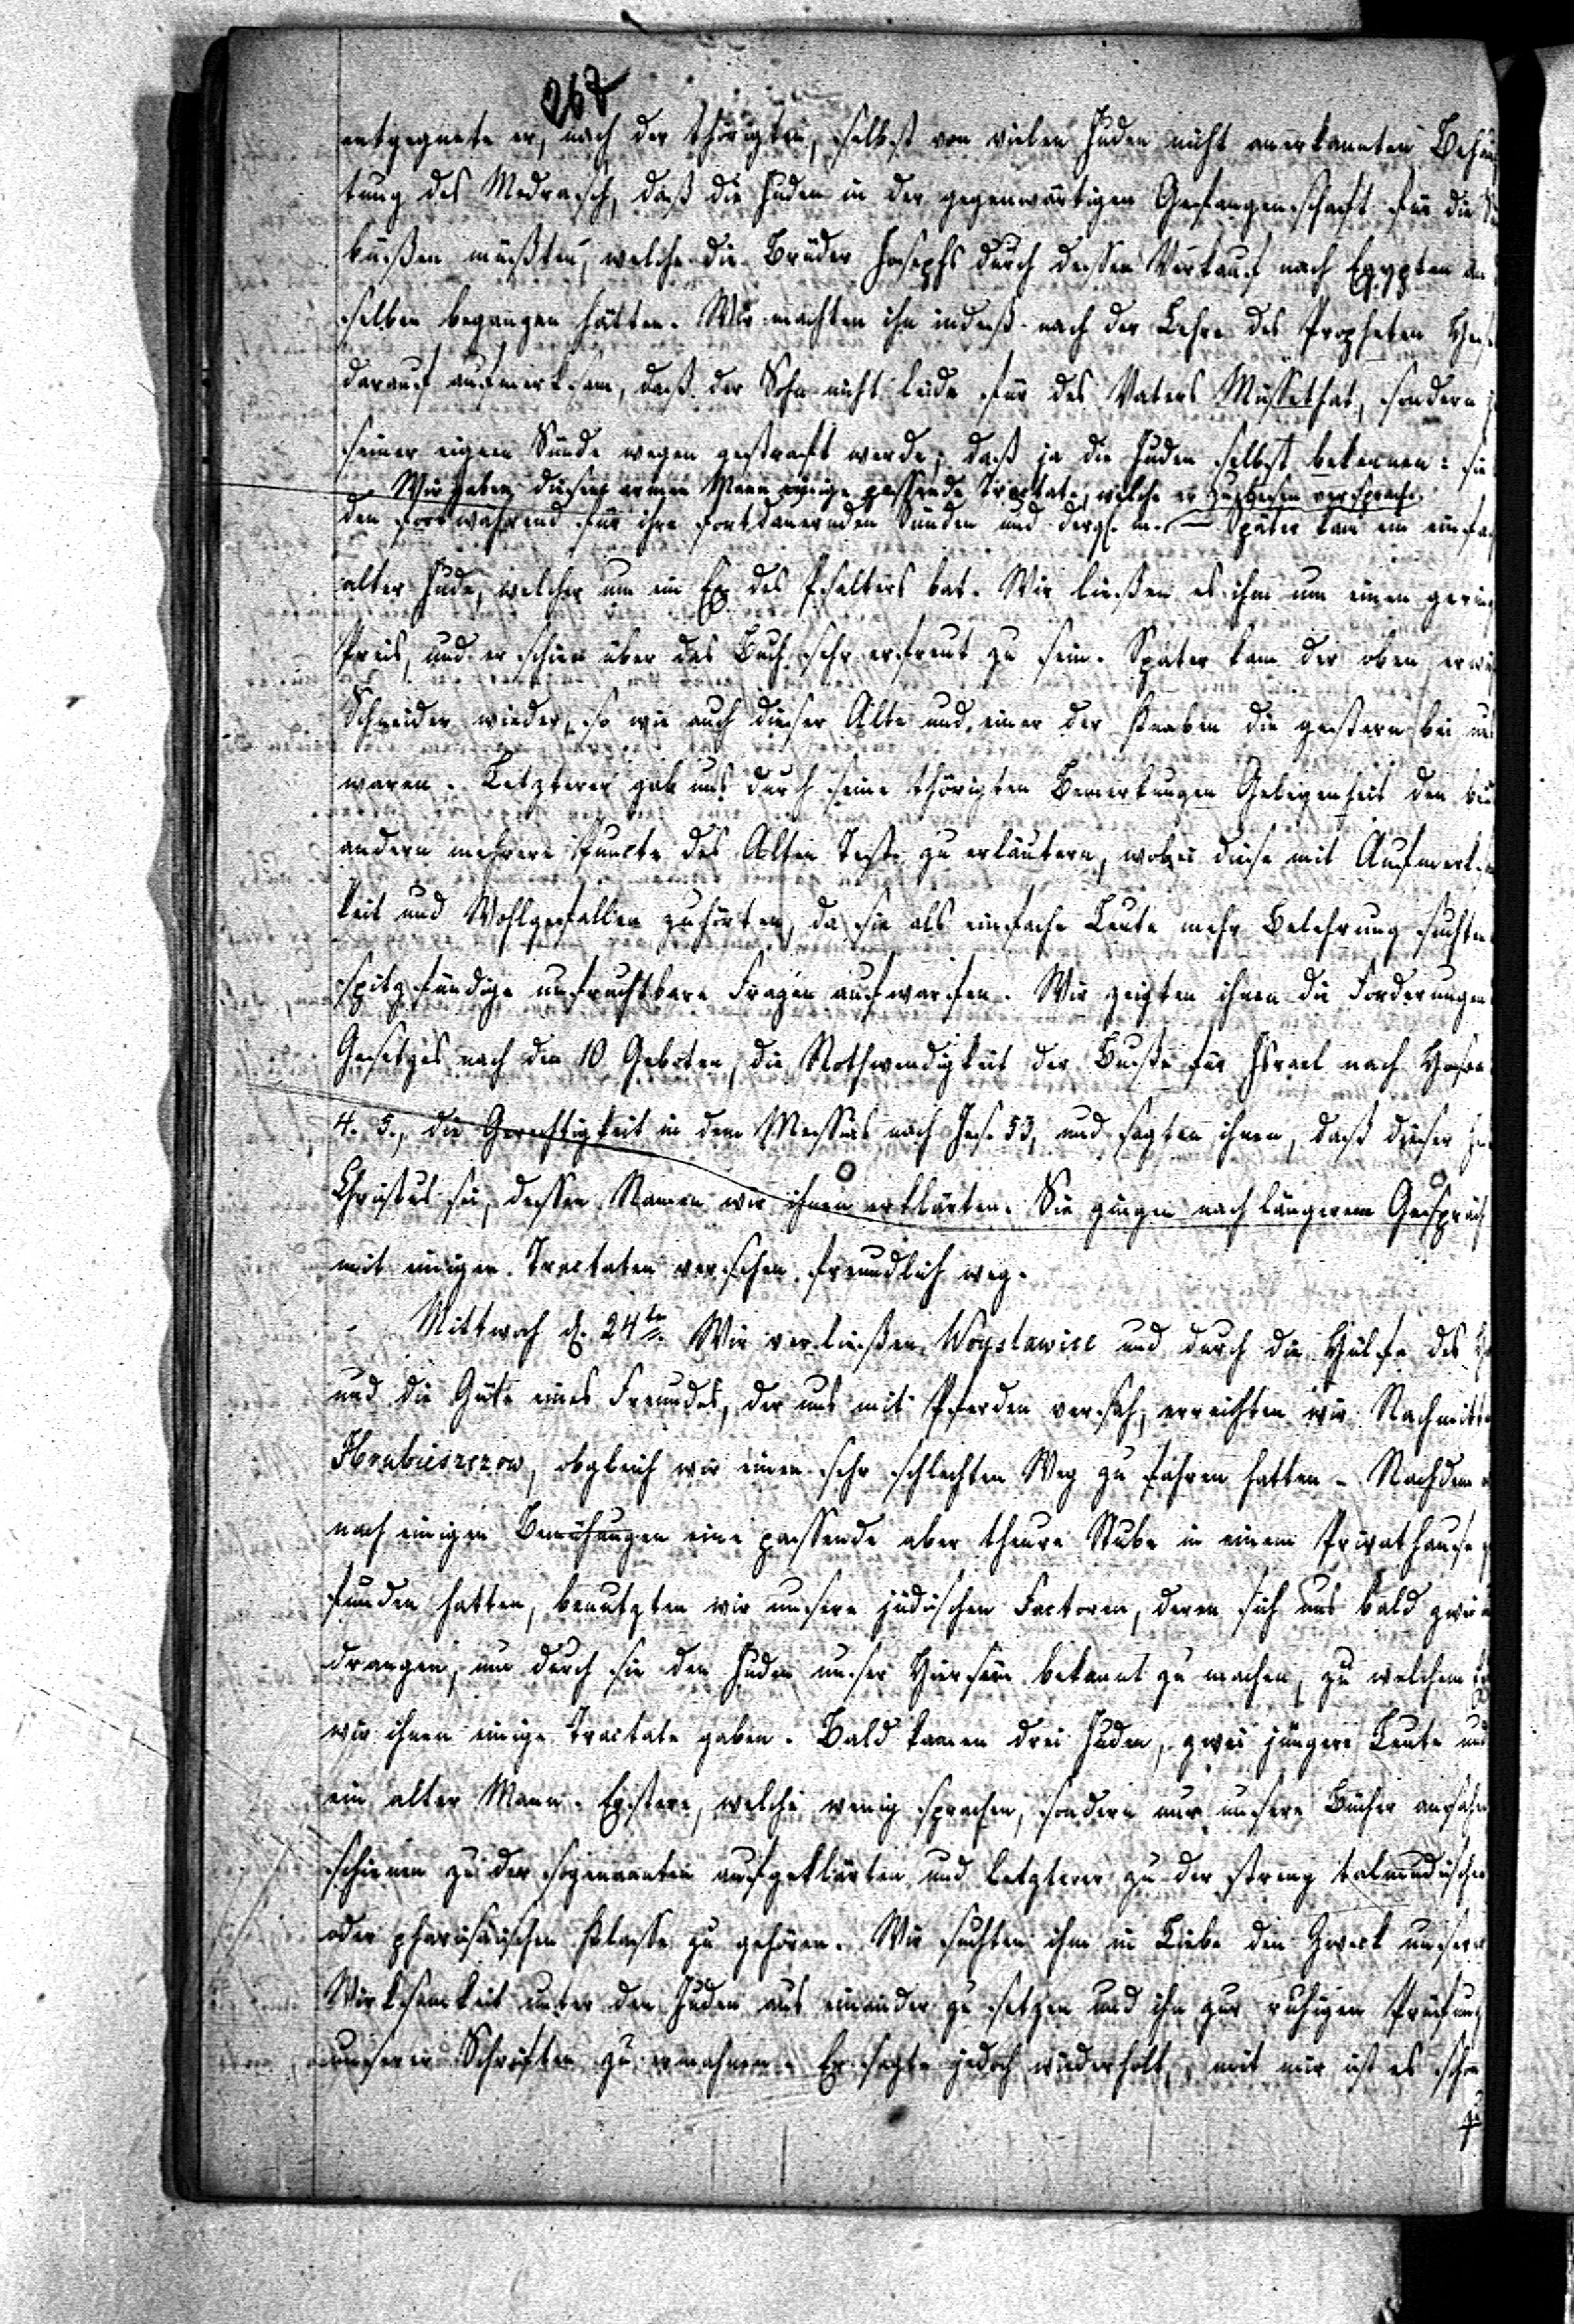 268
entgegnete er, nach der thörigten, selbst von vielen Juden nicht anerkannten Behaup
tung des Medrasch, daß die Juden in der gegenwärtigen Gefangenschaft für die Sü
büßen müßten, welche die Brüder Josephs durch dessen Verkauf nach Egypten an
selben begangen hätten. Wir machten ihn indeß nach der Lehre des Propheten Hes
darauf aufmerksam, daß der Sohn nicht leide für des Vaters Missethat, sondern j
seiner eignen Sünde wegen gestraft werde; daß ja die Juden selbst bekennen: sie
Wir gaben diesem armen Mann einige passende Tractate, welche er zu lesen versprach.
den fortwährend für ihre fortdauernden Sünden und dergl. m. — Später kam ein einfac
alter Jude, welcher um ein Ex. des Psalters bat. Wir ließen es ihm um einen gering
Preis, und er schien über das Buch sehr erfreut zu sein. Später kam der oben erwä
Schneider wieder, so wie auch dieser Alte und einer der Knaben die gestern bei uns
waren. Letzterer gab uns durch seine thörigten Bemerkungen Gelegenheit den bei
andern mehrere Puncte des Alten Test. zu erläutern, wobei diese mit Aufmerksam
keit und Wohlgefallen zuhörten, da sie als einfache Leute mehr Belehrung suchten
spitzfündige unfruchtbare Fragen aufwarfen. Wir zeigten ihnen die Forderungen
Gesetzes nach den 10 Geboten, die Nothwendigkeit der Buße für Israel nach Hosea
4. 5., die Gerechtigkeit in dem Messias nach Jes. 53, und sagten ihnen, daß dieser
Christus sei, dessen Namen wir ihnen erklärten. Sie gingen nach längerem Gespräch
mit einigen Tractaten versehen freundlich weg.
Mittwoch d. 24ten. Wir verließen Woyslawice und durch die Hülfe des H
und die Güte eines Freundes, der uns mit Pferden versah, erreichten wir Nachmitt
Hrubieszow, obgleich wir einen sehr schlechten Weg zu fahren hatten - Nachdem
nach einigen Bemühungen eine passende aber theure Stube in einem Privathause g
funden hatten, benutzten wir unsere jüdischen Factoren, deren sich uns bald zwei
drangen, um durch sie den Juden unser Hiersein bekannt zu machen, zu welchem
wir ihnen einige Tractate gaben. Bald kamen drei Juden, zwei jüngere Leute und
ein alter Mann. Erstere, welche wenig sprachen, sondern nur unsere Bücher ansahen
schienen zu der sogenannten aufgeklärten und letzterer zu der streng talmudischen
oder pharisäischen Klasse zu gehören. Wir suchten ihm in Liebe den Zweck unserer
Wirksamkeit unter den Juden aus einander zu setzen und ihn zur ruhigen Prüfung
unserer Schriften zu ermahnen. Er sagte jedoch wiederholt, mit mir ist es schon